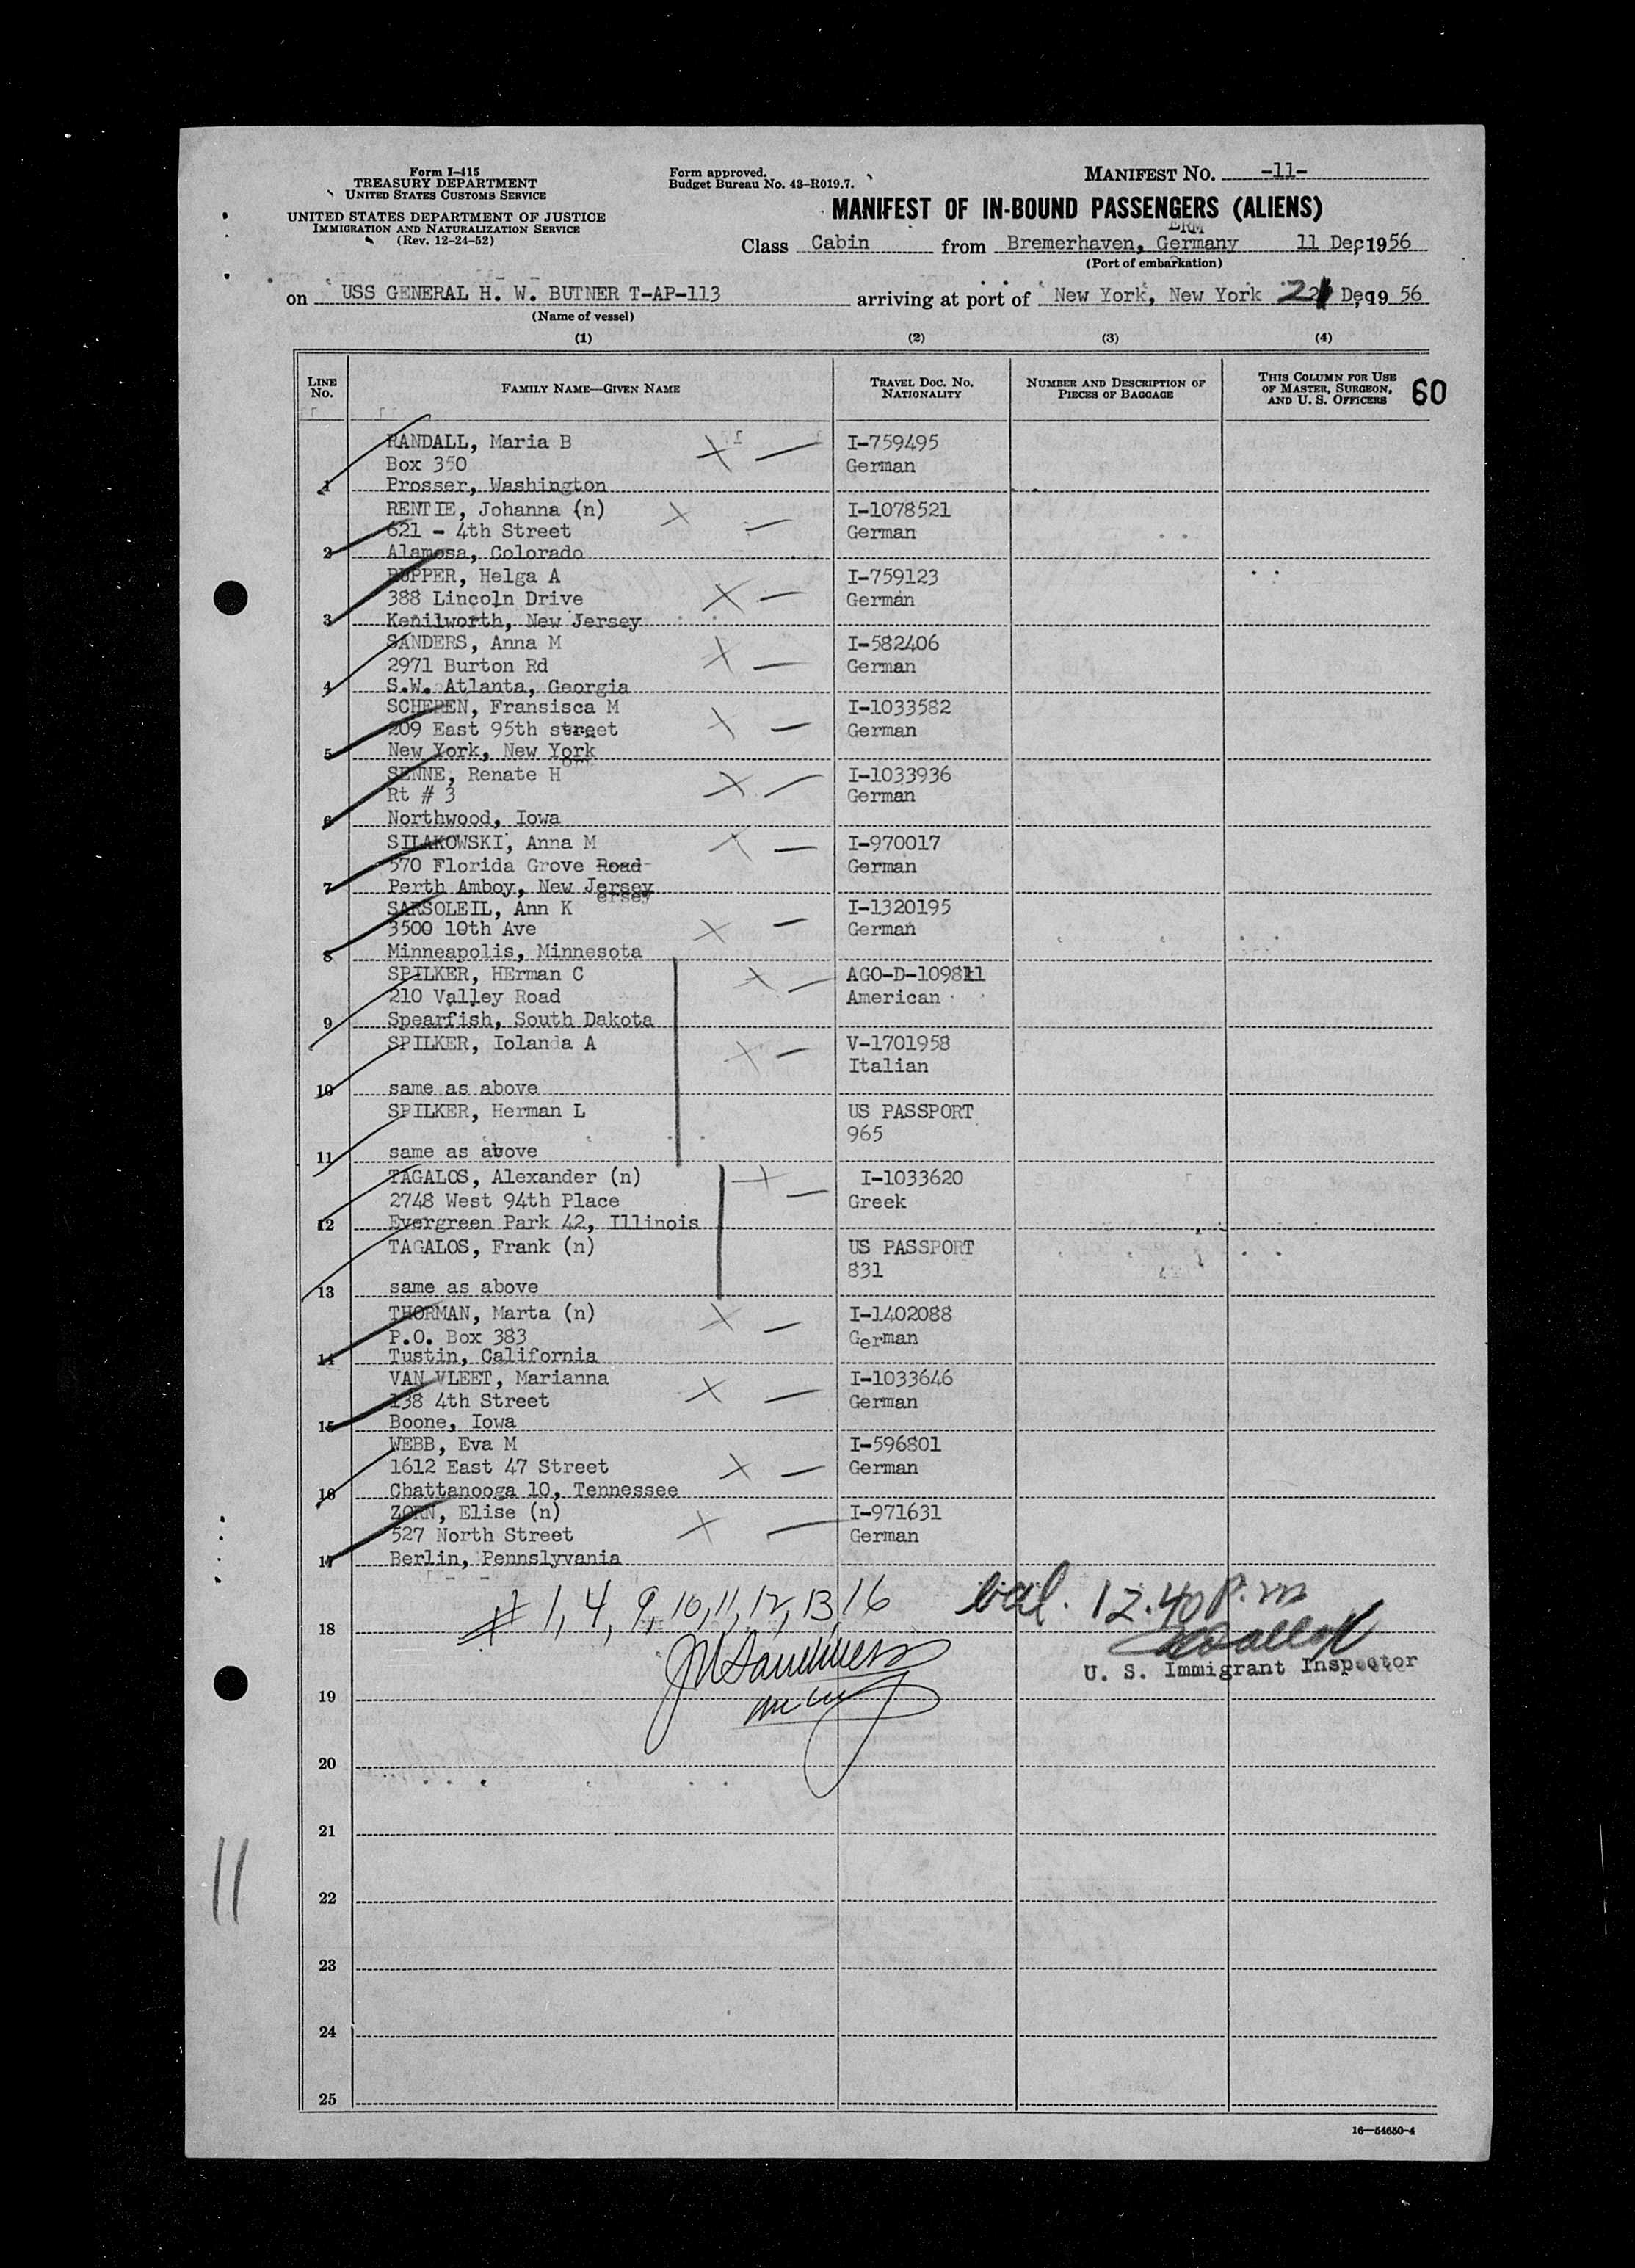 Form I-415
TREASURY DEPARTMENT
UNITED STATES CUSTOMS SERVICE
UNITED STATES DEPARTMENT OF JUSTICE
IMMIGRATION AND NATURALIZATION SERVICE
(Rev. 12-24-52)
Form approved.
Budget Bureau No. 43-R019.7.
MANIFEST NO. -11-
MANIFEST OF IN-BOUND PASSENGERS (ALIENS)
Class Cabin from Bremerhaven, Germany 11 Dec, 1956
(Port of embarkation)
on USS GENERAL H. W. BUTNER T-AP-113 arriving at port of New York, New York 21 Dec, 19 56
(Name of vessel)
(1) (2) (3) (4)
LINE NO. FAMILY NAME—GIVEN NAME TRAVEL DOC. NO. NATIONALITY NUMBER AND DESCRIPTION OF PIECES OF BAGGAGE THIS COLUMN FOR USE OF MASTER, SURGEON, AND U. S. OFFICERS 60
RANDALL, Maria B I-759495
Box 350 German
1 Prosser, Washington
RENTIE, Johanna (n) I-1078521
621 - 4th Street German
2 Alamosa, Colorado
RUPPER, Helga A I-759123
388 Lincoln Drive German
3 Kenilworth, New Jersey
SANDERS, Anna M I-582406
2971 Burton Rd German
4 S.W. Atlanta, Georgia
SCHEREN, Fransisca M I-1033582
209 East 95th street German
5 New York, New York
SENNE, Renate H I-1033936
Rt # 3 German
6 Northwood, Iowa
SILAKOWSKI, Anna M I-970017
570 Florida Grove Road German
7 Perth Amboy, New Jersey
SARSOLEIL, Ann K I-1320195
3500 10th Ave German
8 Minneapolis, Minnesota
SPILKER, HErman C AGO-D-109811
210 Valley Road American
9 Spearfish, South Dakota
SPILKER, Iolanda A V-1701958
Italian
10 same as above
SPILKER, Herman L US PASSPORT
965
11 same as above
TAGALOS, Alexander (n) I-1033620
2748 West 94th Place Greek
12 Evergreen Park 42, Illinois
TAGALOS, Frank (n) US PASSPORT
831
13 same as above
THORMAN, Marta (n) I-1402088
P.O. Box 383 German
14 Tustin, California
VAN VLEET, Marianna I-1033646
138 4th Street German
15 Boone, Iowa
WEBB, Eva M I-596801
1612 East 47 Street German
16 Chattanooga 10, Tennessee
ZORN, Elise (n) I-971631
527 North Street German
17 Berlin, Pennslyvania
18 # 1, 4, 9, 10, 11, 12, 13, 16 bal. 12.40 P.m
U. S. Immigrant Inspector
19
20
21
11
22
23
24
25
16—54650-4